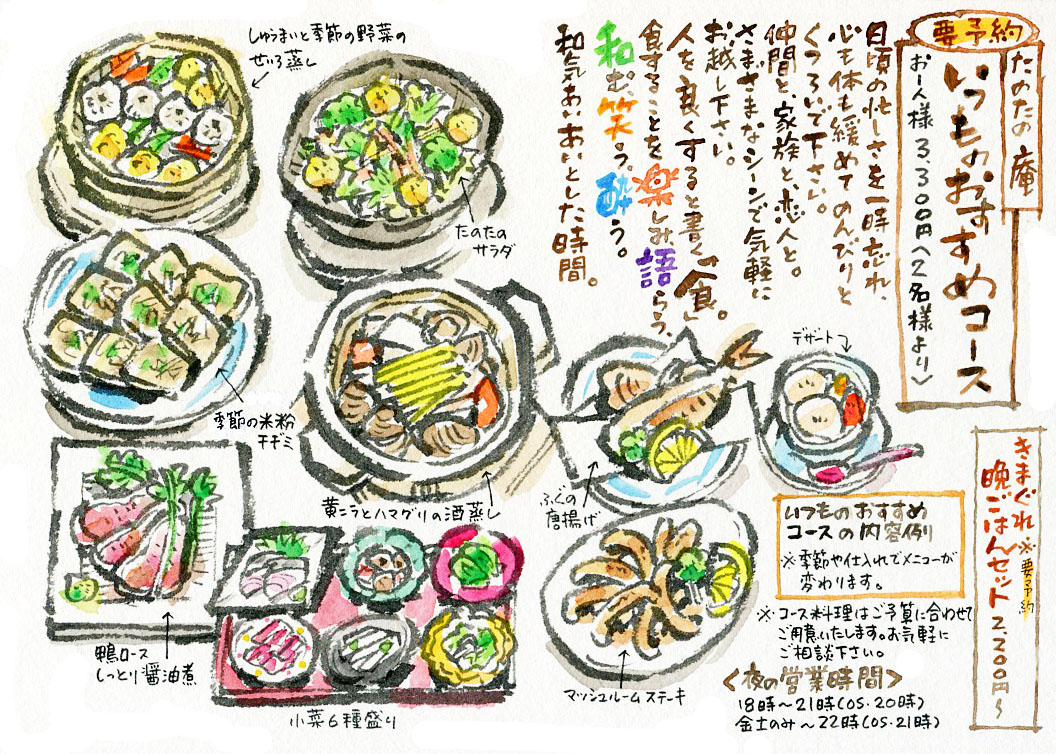 要予約
たのたの庵
いつものおすすめコース
お一人様 3,300円〈2名様より〉
日頃の忙しさを一時忘れ、
心も体も緩めてのんびりと
くつろいで下さい。
仲間と、家族と、恋人と。
さまざまなシーンで気軽に
お越し下さい。
人を良くすると書く「食」。
食することを楽しみ、語らう。
和む、笑う、酔う。
和気あいあいとした時間。
しゅうまいと季節の野菜の
せいろ蒸し
たのたの
サラダ
季節の米粉
チヂミ
黄ニラとハマグリの酒蒸し
ふぐの
唐揚げ
デザート
鴨ロース
しっとり醤油煮
小菜6種盛り
マッシュルームステーキ
いつものおすすめ
コースの内容例
※季節や仕入れでメニューが
変わります。
※コース料理はご予算に合わせて
ご用意いたします。お気軽に
ご相談下さい。
〈夜の営業時間〉
18時〜21時(OS・20時)
金土のみ〜22時(OS・21時)
きまぐれ※要予約
晩ごはんセット2,200円〜